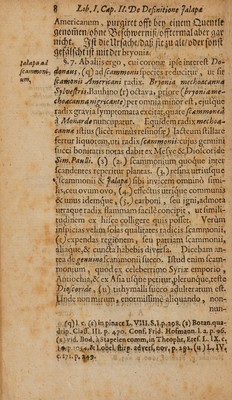 8 Lib. I. Cap. II. De Definitione Jalapæ
Americanern, purgiret offt bey einem Quentle
genosten/ohne Beschwerniß/offtermal aber gar
nicht. Ist die Ursache/daß sie zu alt/oder sonst
gefälschet ist wieder bryonia.
Jalapa ad
scammoni-
um,
§. 7. Ab aliis ergo, cui coronæ ipse interest Do-
donæus, (q) ad scammonii species reducitur, ut sit
scammonium Americanum radix. Bryonia mechoacanna
sylvestris, Bauhino (r) octava, priore (bryonia me-
choacanna nigricante) per omnia minor est, ejusque
radix gravia symptomata excitat, quare scammoneâ
à Monarde nuncupatur. Equidem radix mechoa-
canna istius (licet minus resinosæ) lacteum stillare
fertur liquorem, uti radix scammonii: cujus germini
succi bonitatis notas dabit ex Mesue & Dioscoride
Sim. Paulli. (s) (2.) scammonium quoque inter
scandentes repertum plantas. (3.) resina utriusque
(scammonii & Jalapæ) sibi invicem omninò simi-
lis, ceu ovum ovo, (4.) effectus utrique communis
& unus idemque, (5.) carboni, seu igni, admota
utraque radix flammam facilè concipit, ut simili-
tudinem ex hisce colligere quis posset. Verùm
inspicias velim solas qualitates radicis scammonii,
(t) expendas regionem, seu patriam scammonii,
aliaque, & cuncta habebis diversa. Dicebam an-
tea de genuino scammonii succo. Istud enim scam-
monium, quod ex celeberrimo Syriæ emporio,
Antiochia, & ex Asia usque petitur, plerunque, teste
Dioscoride, (u) tithymalli succo adulteratum est.
Unde non mirum, enormissimè aliquando, non-
nun-
(q) l. c. (r) in pinace L. VIII. S. I. p. 298. (s) Botan. qua-
drip. Class. III. p. 470. Conf. Frid. Hofmann. l. a. p. 96.
c. 171. p. 349.